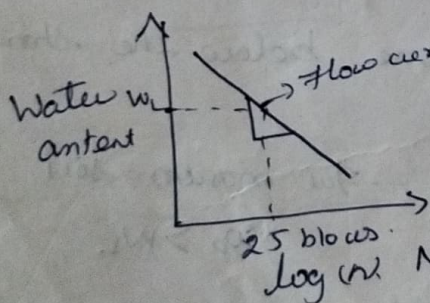 Flow cur
Water W_L
content
25 blows.
log (N. N